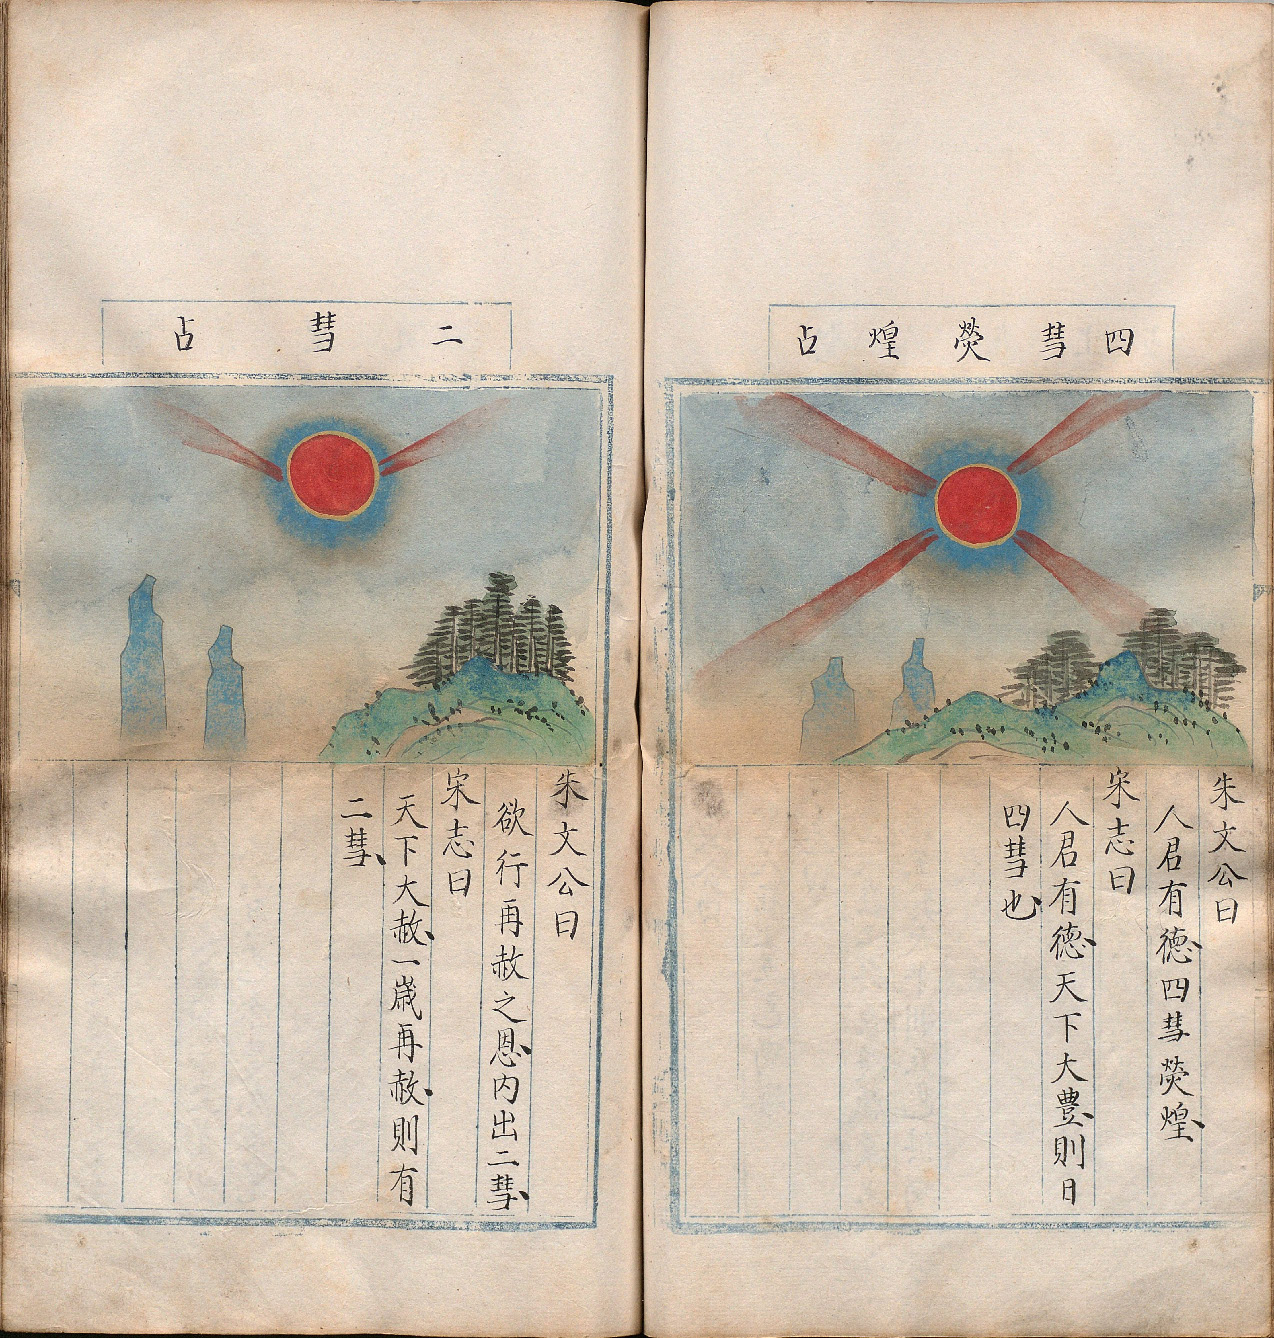 四彗熒煌占
朱文公曰
人君有德四彗熒煌
宋志曰
人君有德天下大豊則日
四彗也
二彗占
朱文公曰
欲行再赦之恩內出二彗
宋志曰
天下大赦一嵗再赦則有
二彗